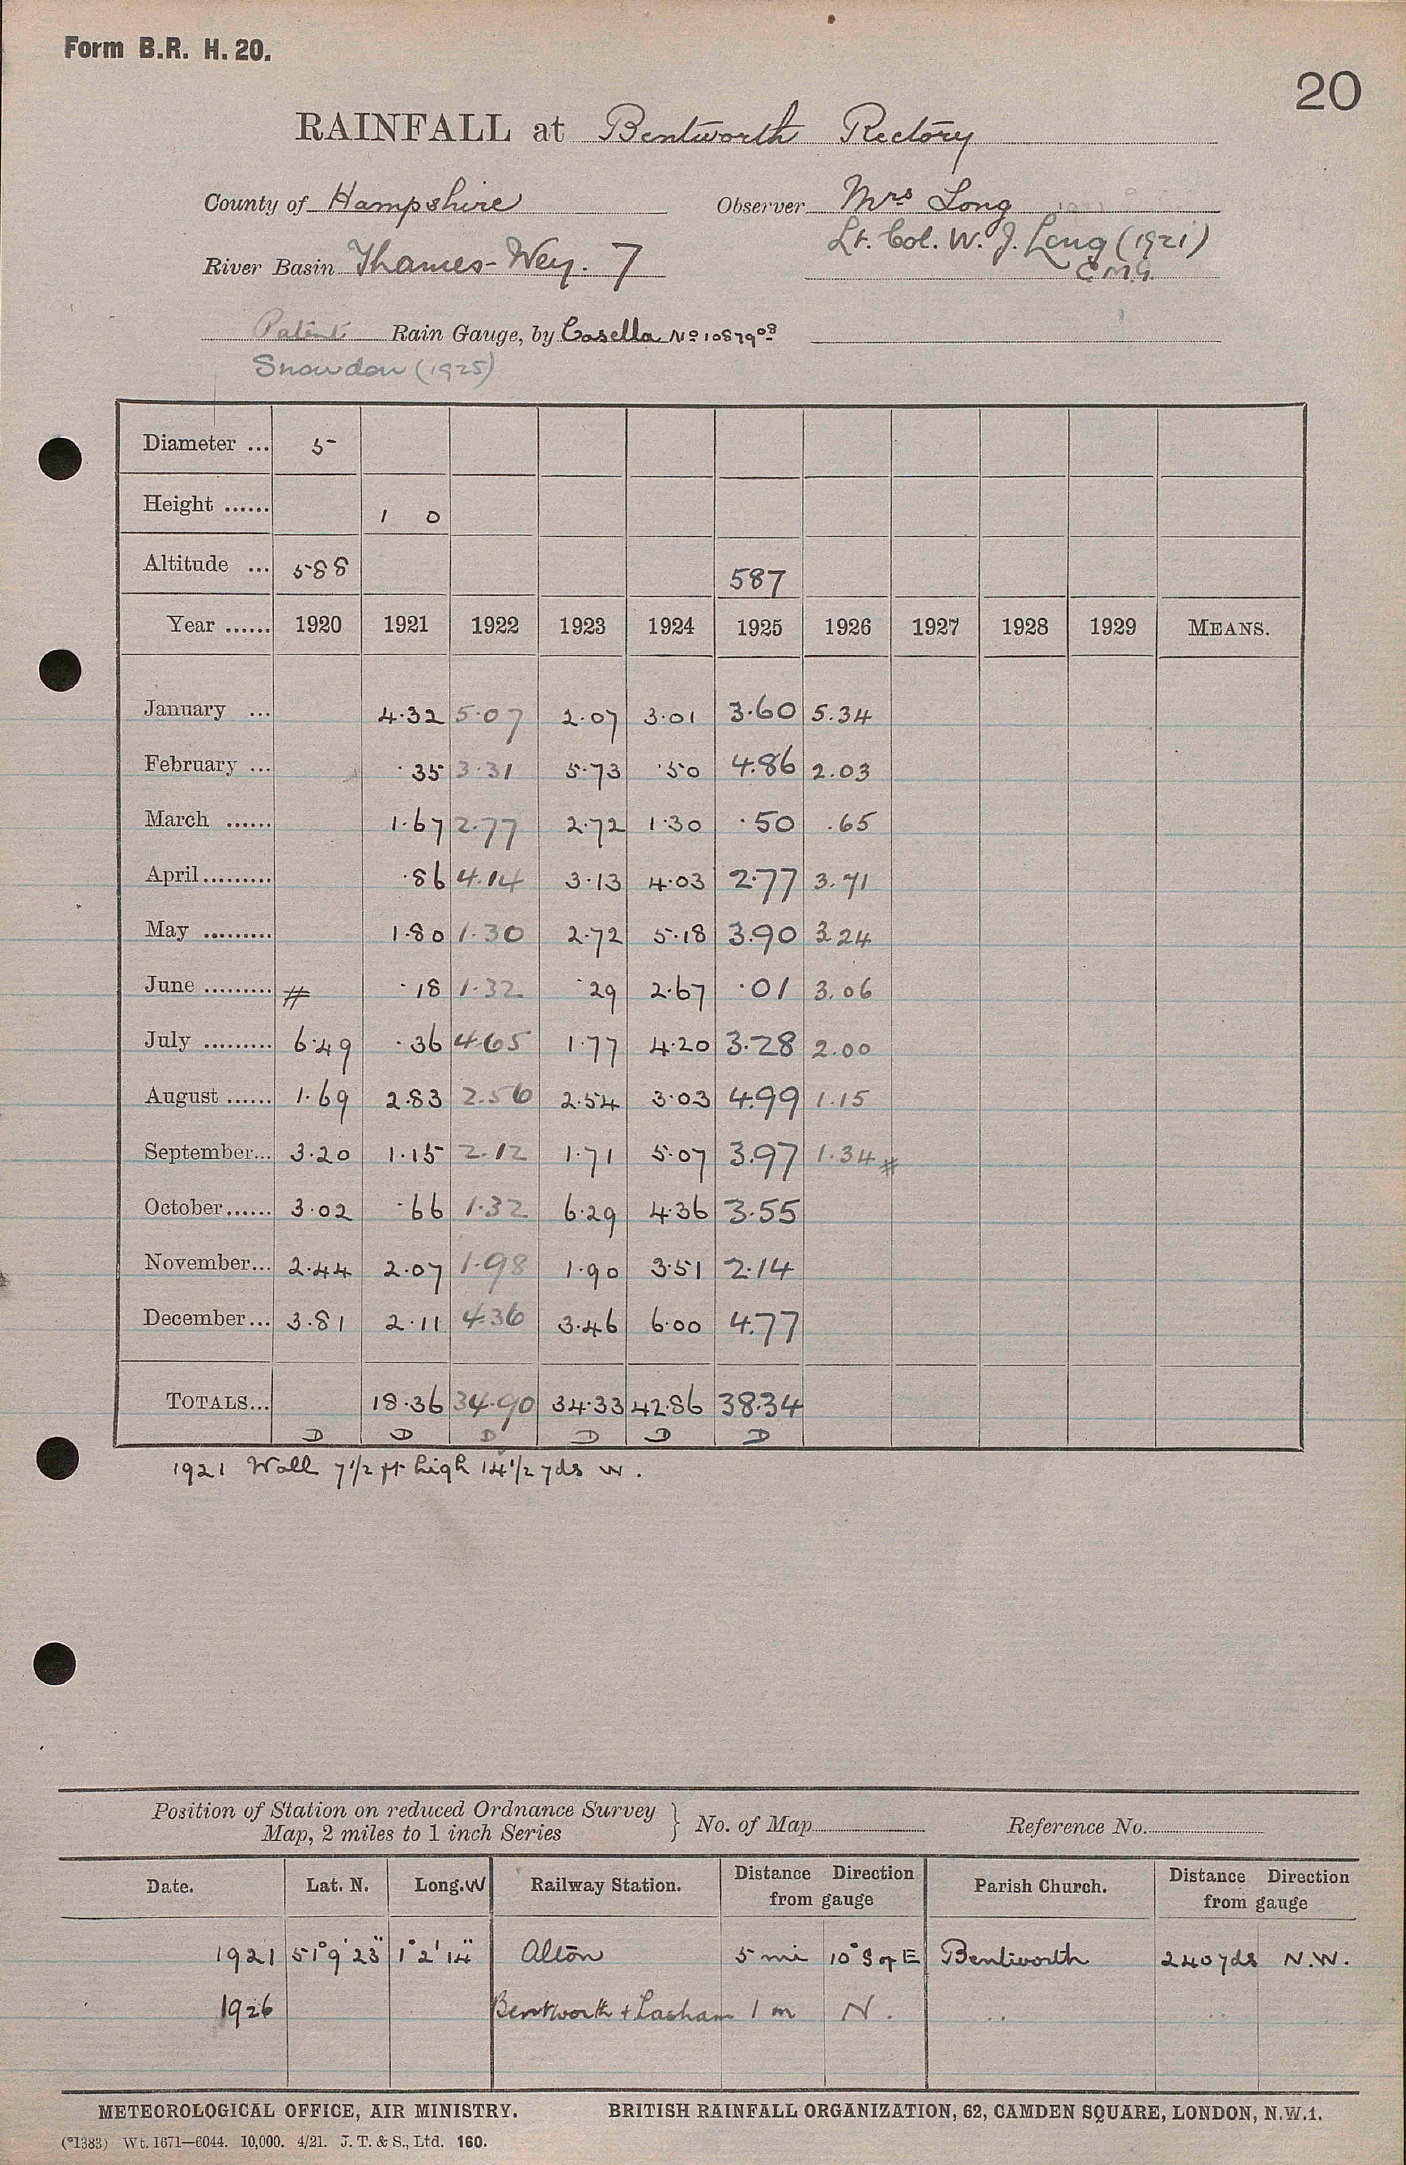 Form B.R. H. 20.
20
RAINFALL at Bentworth Rectory
County of Hampshire Observer Mrs Long
Lt. Col. W. J. Long (1921)
C.M.G.
River Basin Thames-Wey. 7
Patent Rain Gauge, by Casella No 10879 08
Snowdon (1925)
Diameter ... 5
Height ...... 1 0
Altitude ... 588 587
Year ...... 1920 1921 1922 1923 1924 1925 1926 1927 1928 1929 MEANS.
January ... 4.32 5.07 2.07 3.01 3.60 5.34
February ... .35 3.31 5.73 .50 4.86 2.03
March ...... 1.67 2.77 2.72 1.30 .50 .65
April ......... .86 4.14 3.13 4.03 2.77 3.71
May ......... 1.80 1.30 2.72 5.18 3.90 3.24
June ......... # .18 1.32 .29 2.67 .01 3.06
July ......... 6.49 .36 4.65 1.77 4.20 3.28 2.00
August ...... 1.69 2.83 2.56 2.54 3.03 4.99 1.15
September... 3.20 1.15 2.12 1.71 5.07 3.97 1.34 #
October...... 3.02 .66 1.32 6.29 4.36 3.55
November... 2.44 2.07 1.98 1.90 3.51 2.14
December... 3.81 2.11 4.36 3.46 6.00 4.77
TOTALS... 18.36 34.90 34.33 42.86 38.34
D D D D D D
1921 Wall 7 1/2 ft high 14 1/2 yds W.
Position of Station on reduced Ordnance Survey
Map, 2 miles to 1 inch Series } No. of Map Reference No.
Date. Lat. N. Long. W Railway Station. Distance Direction from gauge Parish Church. Distance Direction from gauge
1921 51° 9' 23" 1° 2' 14" Alton 5 mi 10° S of E Bentworth 240 yds N.W.
1926 Bentworth + Lasham 1 m N. .. ..
METEOROLOGICAL OFFICE, AIR MINISTRY. BRITISH RAINFALL ORGANIZATION, 62, CAMDEN SQUARE, LONDON, N.W.1.
(*1383) Wt. 1671—6044. 10,000. 4/21. J. T. & S., Ltd. 160.